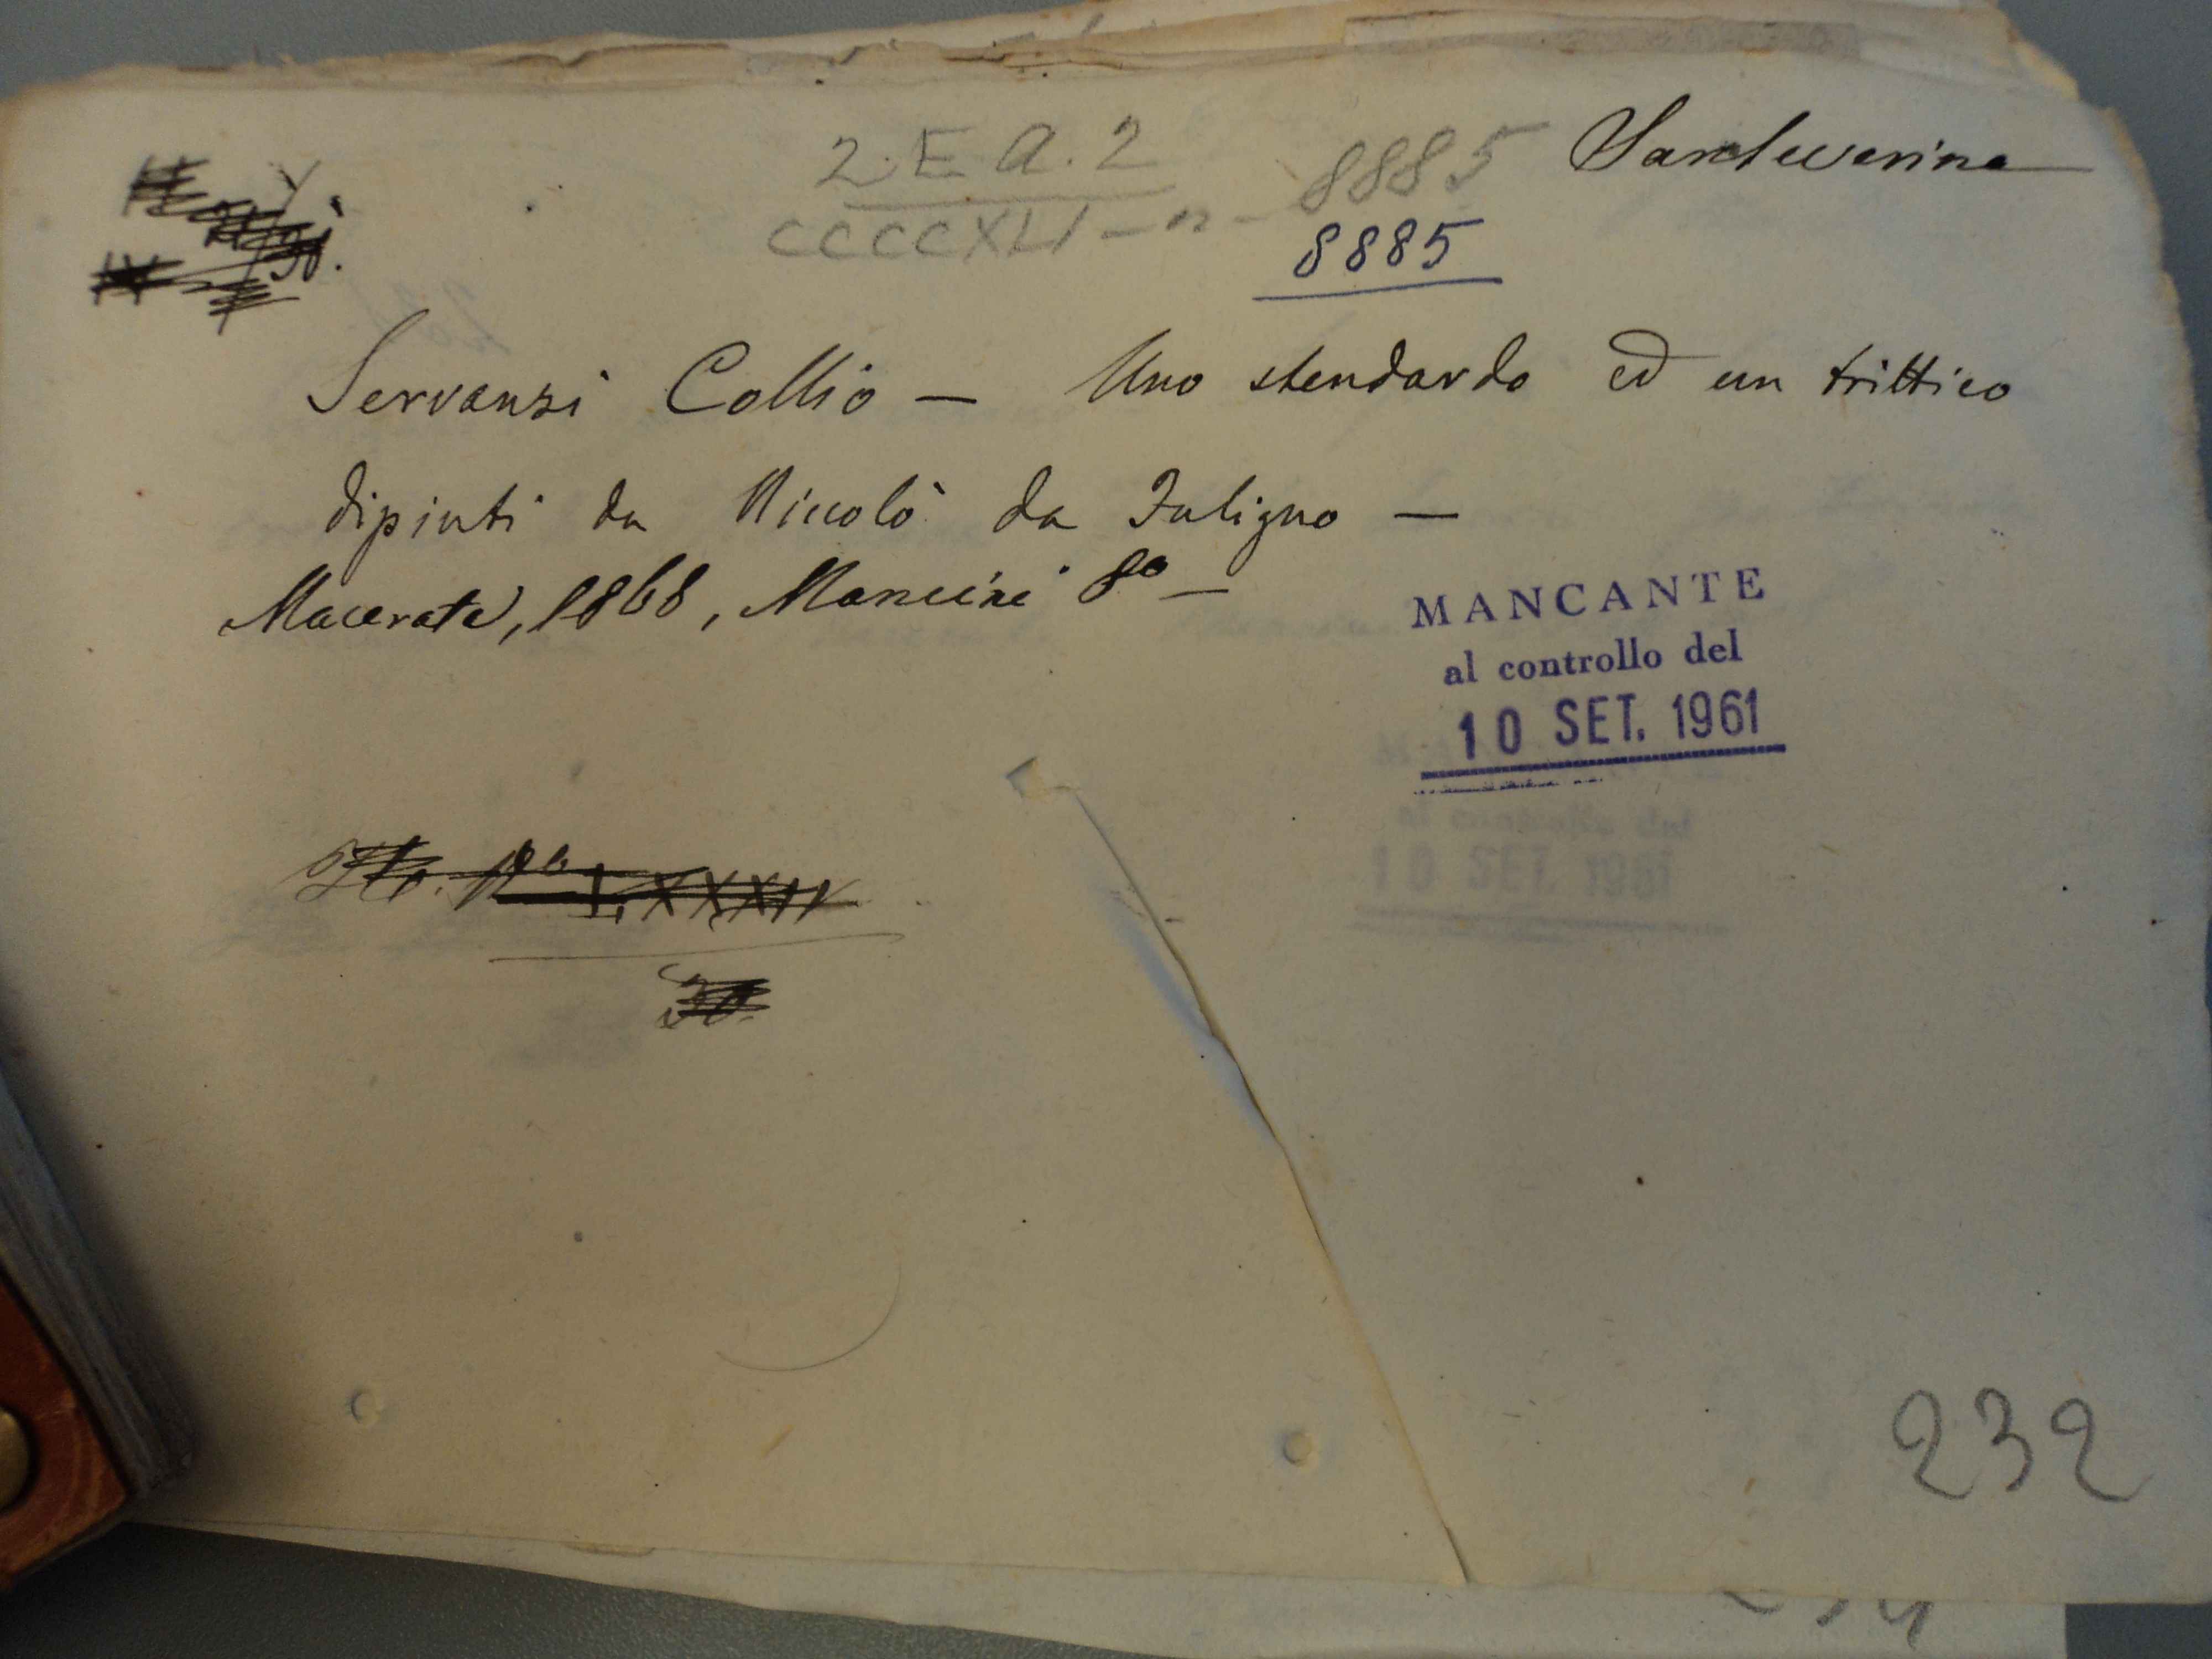 2. E. a. 2
CCCCXLI - n - 8885
8885
Servanzi Collio — Uno stendardo ed un trittico
dipinti da Niccolò da Fuligno —
Macerata, 1868, Mancini 8º —
MANCANTE
al controllo del
10 SET. 1961
LXXXIV
30.
232